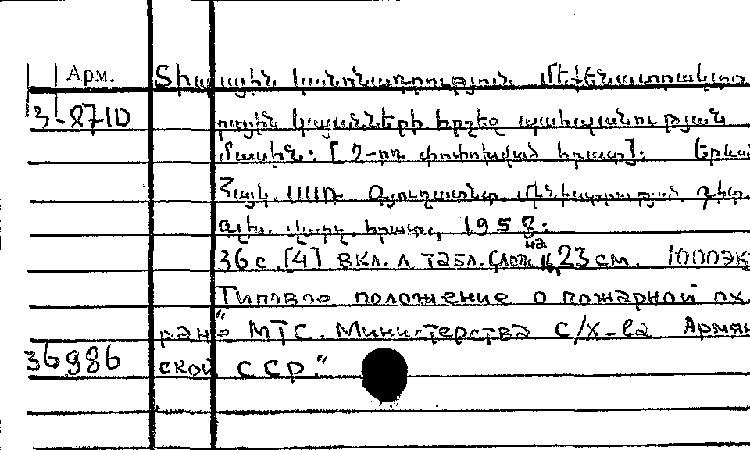 Арм. Տիպային կանոնադրություն մեքենատրակտո
3-8710 րային կայանների հրշեջ պահպանության
մասին: [2-րդ փոփոխված հրատ]: Երևան
Հայկ. ՍՍՌ Գյուղատնտ. մինիստրության գիտ.
վարչ. հրատ., 1958:
36 с. [4] вкл. л табл. 23 см. 1000эк
Типовое положение о пожарной ох
ране МТС. Министерства с/х-ва Армян
36986 ской ССР."